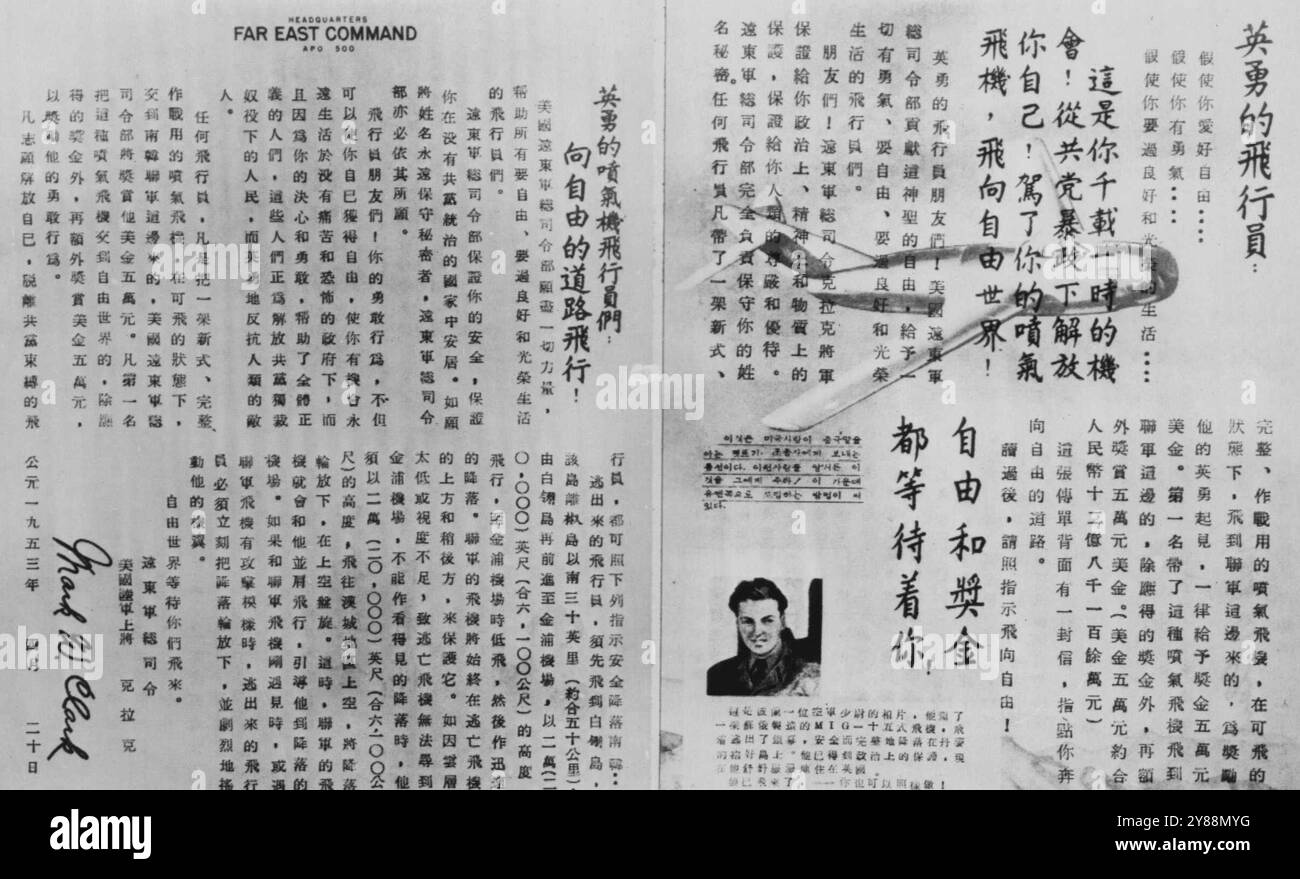 英勇的飛行員：
假使你愛好自由……
假使你有勇氣……
假使你要過良好和光 的生活……
這是你千載一時的機
會！從共党暴政下解放
你自己！駕了你的噴氣
飛機，飛向自由世界！
英勇的飛行員朋友們！美國遠東軍
總司令部貢獻這神聖的自由，給予一
切有勇氣、要自由、要過良好和光榮
生活的飛行員們。
朋友們！遠東軍總司令克拉克將軍
保證給你政治上、精神上和物質上的
保護，保證給你人類的尊嚴和優待。
遠東軍總司令部完全負責保守你的姓
名秘密。任何飛行員凡帶了一架新式、
完整、作戰用的噴氣飛機，在可飛的
狀態下，飛到聯軍這邊來的，爲獎勵
他的英勇起見，一律給予獎金五萬元
美金。第一名帶了這種噴氣飛機飛到
聯軍這邊的，除應得的獎金外，再額
外獎賞五萬元美金。(美金五萬元約合
人民幣十二億八千一百餘萬元)
這張傳單背面有一封信，指點你奔
向自由的道路。
讀過後，請照指示飛向自由！
自由和獎金
都等待着你！
이것은 미국사람이 중국말을
아는 젯트기 조종사에게 보내는
통신이다. 이런사람을 알거든 이
것을 그에게 주라! 이 가운데
유엔쪽으로 도망하는 방법이 써
있다.
HEADQUARTERS
FAR EAST COMMAND
APO 500
英勇的噴氣機飛行員們：
向自由的道路飛行！
美國遠東軍總司令部願盡一切力量，
帮助所有要自由、要過良好和光榮生活
的飛行員們。
遠東軍總司令部保證你的安全，保證
你在沒有共黨統治的國家中安居。如願
將姓名永遠保守秘密者，遠東軍總司令
部亦必依其所願。
飛行員朋友們！你的勇敢行爲，不但
可以使你自己獲得自由，使你有機會永
遠生活於沒有痛苦和恐怖的政府下，而
且因爲你的決心和勇敢，帮助了全體正
義的人們，這些人們正爲解放共黨獨裁
奴役下的人民，而英勇地反抗人類的敵
人。
任何飛行員，凡是把一架新式、完整、
作戰用的噴氣飛機，在可飛的狀態下，
交到南韓聯軍這邊來的，美國遠東軍總
司令部將獎賞他美金五萬元。凡第一名
把這種噴氣飛機交到自由世界的，除應
得的獎金外，再額外獎賞美金五萬元，
以獎勵他的勇敢行爲。
凡志願解放自己，脫離共黨束縛的飛
行員，都可照下列指示安全降落南韓：
逃出來的飛行員，須先飛到白翎島，
該島離椒島以南三十英里（約合五十公里）
由白翎島再前進至金浦機場，以二萬(二
〇,〇〇〇)英尺(合六,一〇〇公尺)的高度
飛行，到金浦機場時低飛，然後作迅速
的降落。聯軍的飛機將始終在逃亡飛機
的上方和稍後方，來保護它。如因雲層
太低或視度不足，致逃亡飛機無法尋到
金浦機場，不能作看得見的降落時，他
須以二萬(二〇,〇〇〇)英尺(合六,一〇〇公
尺)的高度，飛往漢城地區上空，將降落
輪放下，在上空盤旋。這時，聯軍的飛
機就會和他並肩飛行，引導他到降落的
機場。如果和聯軍飛機剛遇見時，或遇
聯軍飛機有攻擊模樣時，逃出來的飛行
員必須立刻把降落輪放下，並劇烈地搖
動他的機翼。
自由世界等待你們飛來。
遠東軍總司令
美國陸軍上將 克拉克
Mark W Clark
公元一九五三年 四月 二十日
alamy
Image ID: 2Y88MYG
www.alamy.com